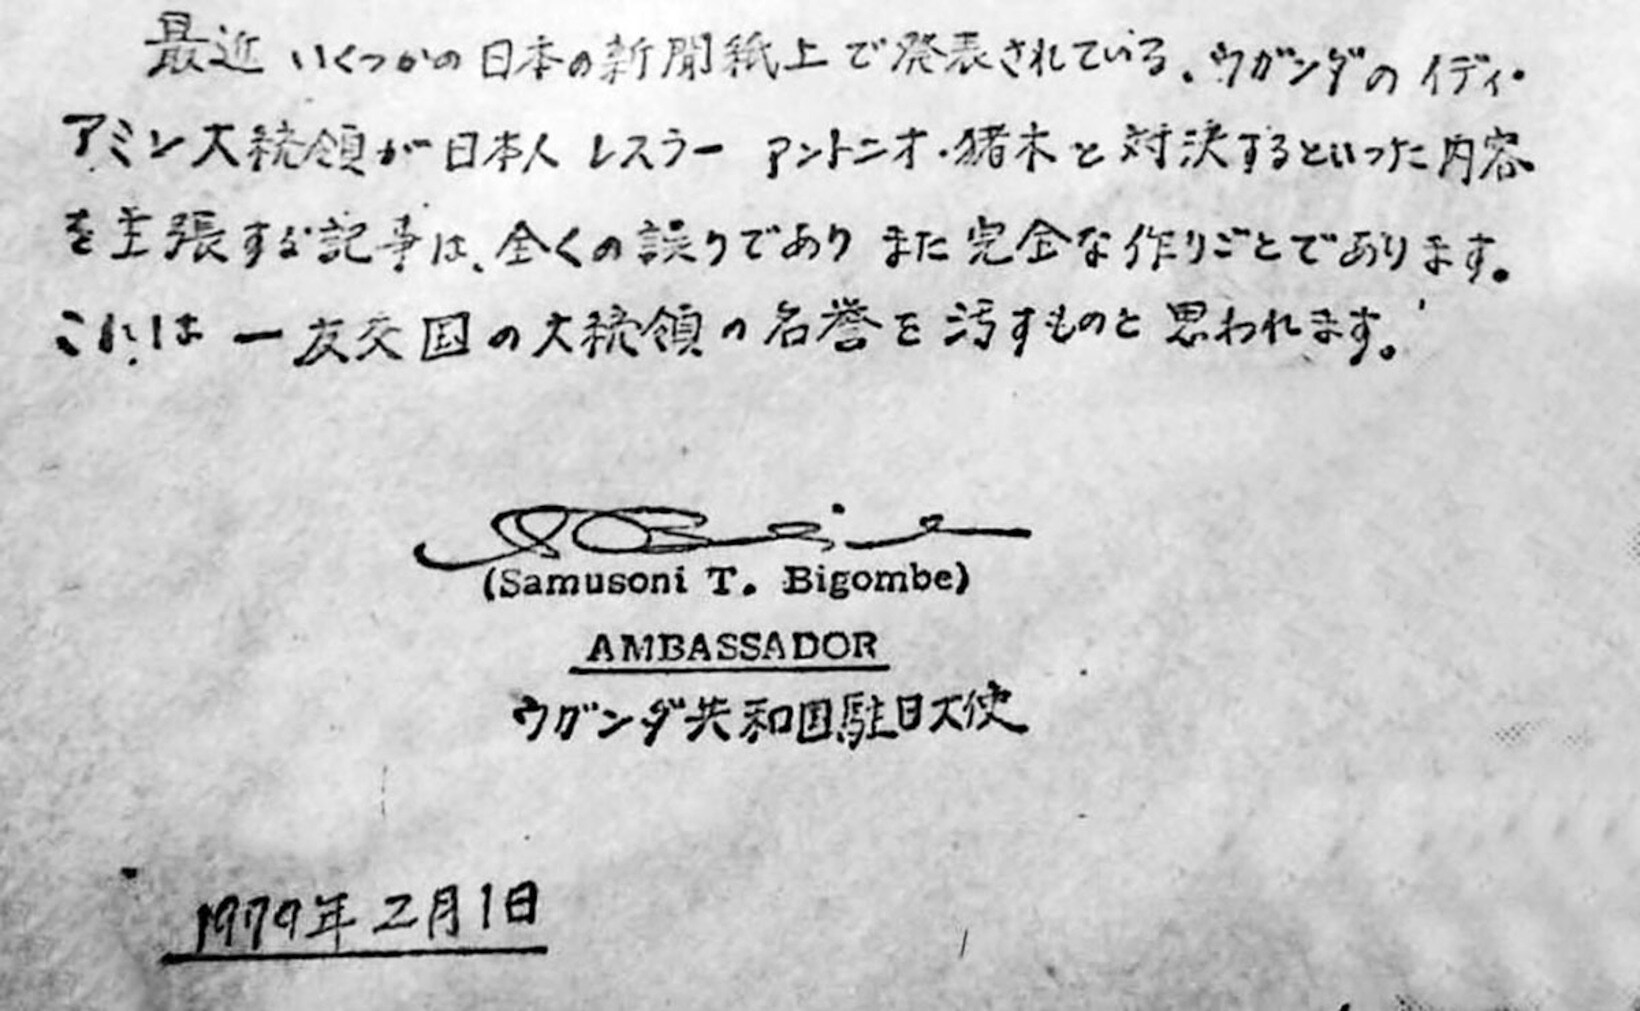 最近 いくつかの日本の新聞紙上で発表されている、ウガンダのイディ・
アミン大統領が日本人 レスラー アントニオ・猪木と対決するといった内容
を主張する記事は、全くの誤りであり また完全な作りごとであります。
これは一友交国の大統領の名誉を汚すものと思われます。
(Samusoni T. Bigombe)
AMBASSADOR
ウガンダ共和国駐日大使
1979年2月1日